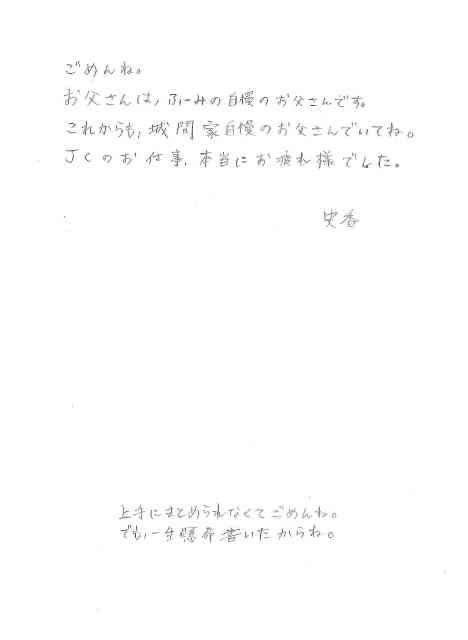 ごめんね。
お父さんは、ふーみの自慢のお父さんです。
これからも、城間家自慢のお父さんでいてね。
JCのお仕事、本当にお疲れ様でした。
史香
上手にまとめられなくてごめんね。
でも、一生懸命書いたからね。